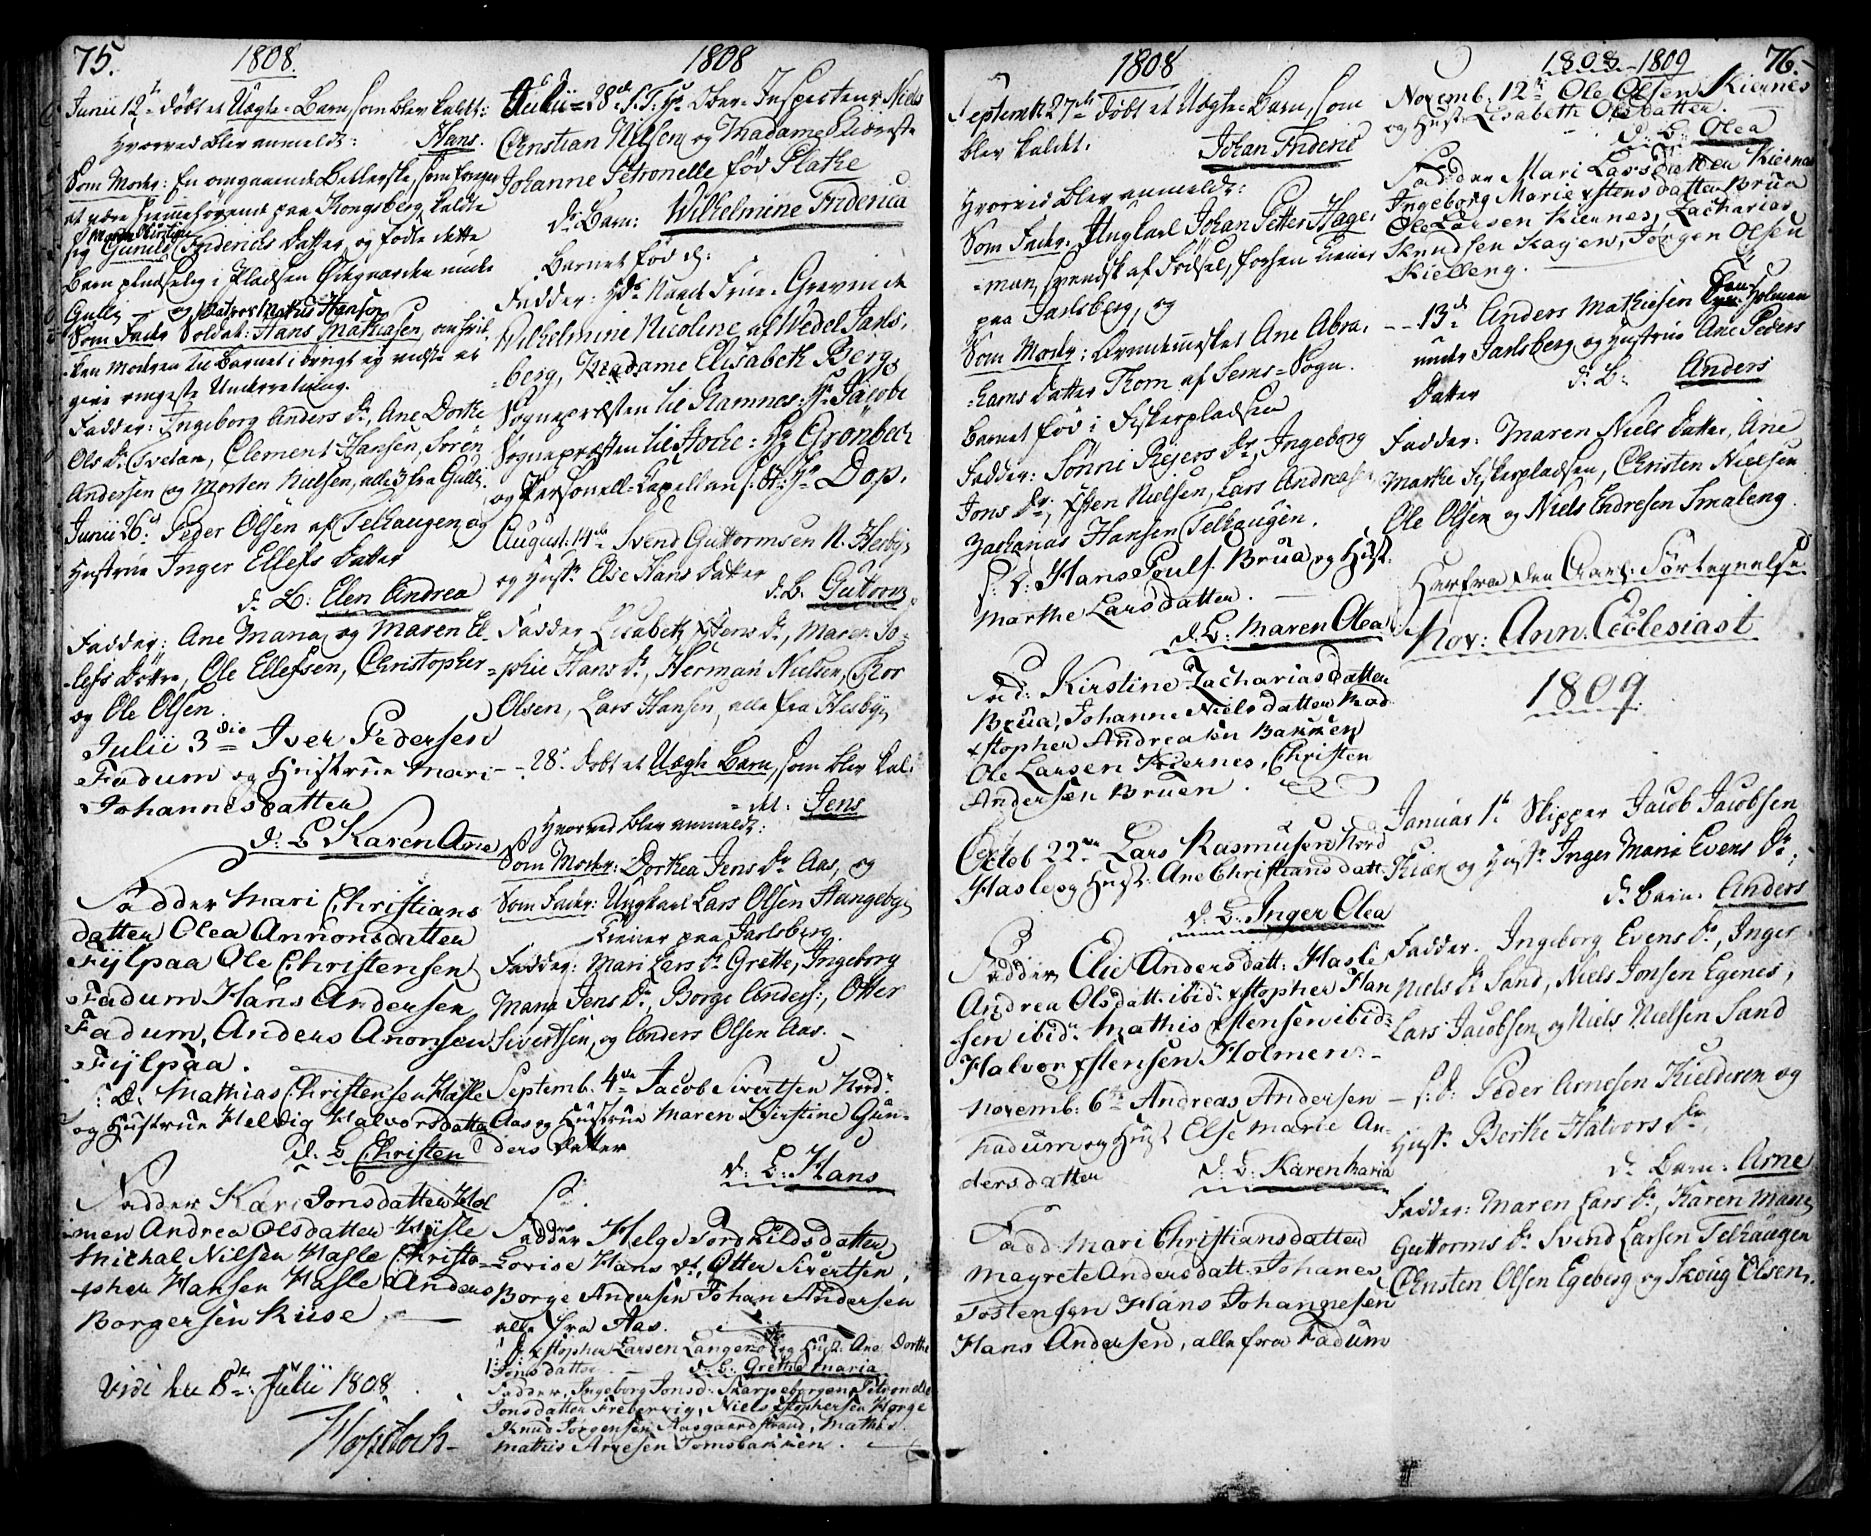 75.
1808.
Junii 12te døbt et Uægte-Barn, som blev kaldt:
Hvorved blev anmeldt: Hans.
Som Moder: En omgaaende Betlerske, som foregav
at være hiemmehørende paa Kongsberg, kaldte
Marthe Kirstine
sig Gunild Friderichs Datter, og fødte dette
Barn pludselig i Pladsen Ødegaarden under
Gulli — og
Som Fader Soldat: Hans Mathiasen, om hvil-
-ken Moderen til Barnet i øvrigt ej vidste at
give ringeste Underretning.
Fadder: Ingeborg Anders Dr, Ane Dorthe
Ols Dr Svedan, Clement Hansen, Søren
Andersen og Morten Nielsen, alle 3 fra Gulli.
Junii 26: Peder Olsen af Telhaugen og
Hustrue Inger Ellefs Datter
d. B: Elen Andrea
Fadder: Ane Maria og Maren El-
-lefs Døttre, Ole Ellefsen, Christopher
og Ole Olsen.
Julii 3die Iver Pedersen
Fadum og Hustrue Mari
Johannesdatter
d: B Karen Ane
Fadder Mari Christians
datter Olea Annonsdatter
Fijlpaa Ole Christensen
Fadum Hans Andersen
Fadum, Anders Anonsen
Fijlpaa.
S: D: Mathias Christensen Hasle
og Hustrue Helvig Halvorsdatter
d: B Christen
Fadder Kari Jonsdatter Hol
men Andrea Olsdatter Hasle
Michal Nilsen Hasle Christo-
pher Hansen Hasle Anders
Borgersen Ruse.
Vidi d. 8de Julii 1808.
1808
Julii 28de S.T. Hr Ober-Inspecteur Niels
Christian Nielsen og Madame Kiæreste
Johanne Petronelle fød Plathe
dr. Barn: Wilhelmine Friderica
Barnet fød d:
Fadder: Hds Naade Frue Grevinde
Wilhelmine Nicoline af Wedel Jarls-
-berg, Madame Elisabeth Berg,
Sognepræsten til Ramnes: Hr Jacobi
Sognepræsten til Stocke: Hr Grønbech
og Personell-Capellan S: St: Hr Dop.
August. 14de Svend Guttormsen N. Hesby
og Hustr. Else Hans Datter
d. B. Guttorm
Fadder Lisabeth Xstens Dr, Maren So-
-phie Hans Dr, Herman Nielsen, Thor
Olsen, Lars Hansen, alle fra Hesby
28. døbt et Uægte Barn, som blev kal-
-det: Jens
Hvorved blev anmeldt:
Som Moder: Dorthea Jens Dr Aas, og
Som Fader: Ungkarl Lars Olsen Haugeby
tiener paa Jarlsberg.
Fadder: Mari Lars Dr Grette, Ingeborg
Maria Jens Dr, Borge Anders:, Otter
Sivertsen, og Anders Olsen Aas.
Septemb. 4de Jacob Sivertsen Nord-
Aas og Hustrue Maren Kirstine Gun-
ders Datter
d: B: Hans
Fadder Helge Tordkildsdatter
Lovise Hans dr, Otter Sivertsen,
Borge Andersen Johan Andersen
alle fra Aas.
S. D Xstopher Larsen Langenes og Hust: Ane Dorthe
Jonsdatter — d. B: Grethe Maria
Fadder, Ingeborg Jonsd: Skarpeborgen Petronelle
Jonsdatter Frebervig, Niels Xstophersen Horge
Knud Jørgensen Aasgaardstrand, Mathis
Mathis Arvesen Tomsbakken.
1808
Septembr 27de døbt et Uægte Barn, som
blev kaldt: Johan Frideric
Hvorved blev anmeldt:
Som Fader: Ungkarl Johan Petter Hage-
-man, Svendsk af Fødsel, forhen tiener
paa Jarlsberg, og
Som Moder: Qvindemennesket Ane Abra-
-hams Datter Thom af Sems-Sogn.
Barnet fød i Fiskerpladsen
Fadder: Sønni Rejers Dr, Ingeborg
Jons Dr, Xsten Nielsen, Lars Andreas:
Zacharias Hansen Telhaugen.
S: D: Hans Pouls: Brua og Hust:
Marthe Larsdatter.
d. B: Maren Olea
Fad: Kirstine Zachariasdatter
Brua, Johanne Nielsdatter Rød
Xstopher Andreasen Bakken
Ole Larsen Kiernes, Christen
Andersen Bruen.
Octob 22de Lars Rasmusen Nord
Hasle og Hust: Ane Christiansdatt:
d. B: Inger Olea
Fadder Elie Andersdatt: Hasle
Andrea Olsdatt: ibid: Xstopher Han
sen ibid: Mathis Xstensen ibid:
Halvor Xstensen Holmen.
Novemb: 6te Andreas Andersen
Fadum og Hust Else Marie An-
dersdatter d: B: Karen Maria
Fadd: Mari Christiansdatter
Magrete Andersdatt: Johanes
Tostensen Hans Johannesen
Hans Andersen, alle fra Fadum
1808 - 1809
76.
Novemb. 12te Ole Olsen Kiernes
og Hustr. Lisabeth Olsdatter.
d. B: Olea
Fadder Mari Larsdatter Kiernes
Ingeborg Marie Xstensdatter Brua
Ole Larsen Kiernes, Zacharias
Knudsen Kagen, Jørgen Olsen
Kielleng.
— 13de Anders Mathiesen Holman
under Jarlsberg og Hustrue Ane Peders
Datter d. B: Anders
Fadder: Maren Niels Datter, Ane
Marthe Fiskerpladsen, Christen Nielsen
Ole Olsen og Niels Endresen Smaleng.
Herfra den Aarl: Fortegnelse.
Nov: Ann. Ecclesiast
1809.
Januar 1te Skipper Jacob Jacobsen
Kiær og Hustr Inger Maria Evens Dr,
dr. Barn: Anders
Fadder: Ingeborg Evens Dr, Inger
Niels Dr Sand, Niels Jonsen Egenes,
Lars Jacobsen og Niels Nielsen Sand
— S: D: Peder Arnesen Kielderen og
Hustr. Berthe Halvors Dr,
dr. Barn: Arne
Fadder: Maren Lars Dr, Karen Maria
Guttorms Dr Svend Larsen Telhaugen
Christen Olsen Egeberg og Skoug Olsen.